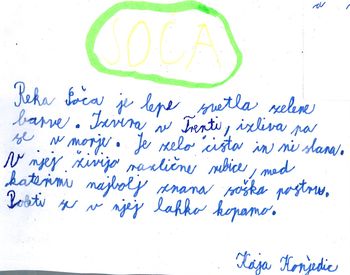 SOČA
Reka Soča je lepe svetla zelene
barve. Izvira v Trenti, izliva pa
se v morje. Je zelo čista in ni slana.
V njej živijo različne ribice, med
katerimi najbolj znana soška postrv.
Poleti se v njej lahko kopamo.
Kaja Konjedic